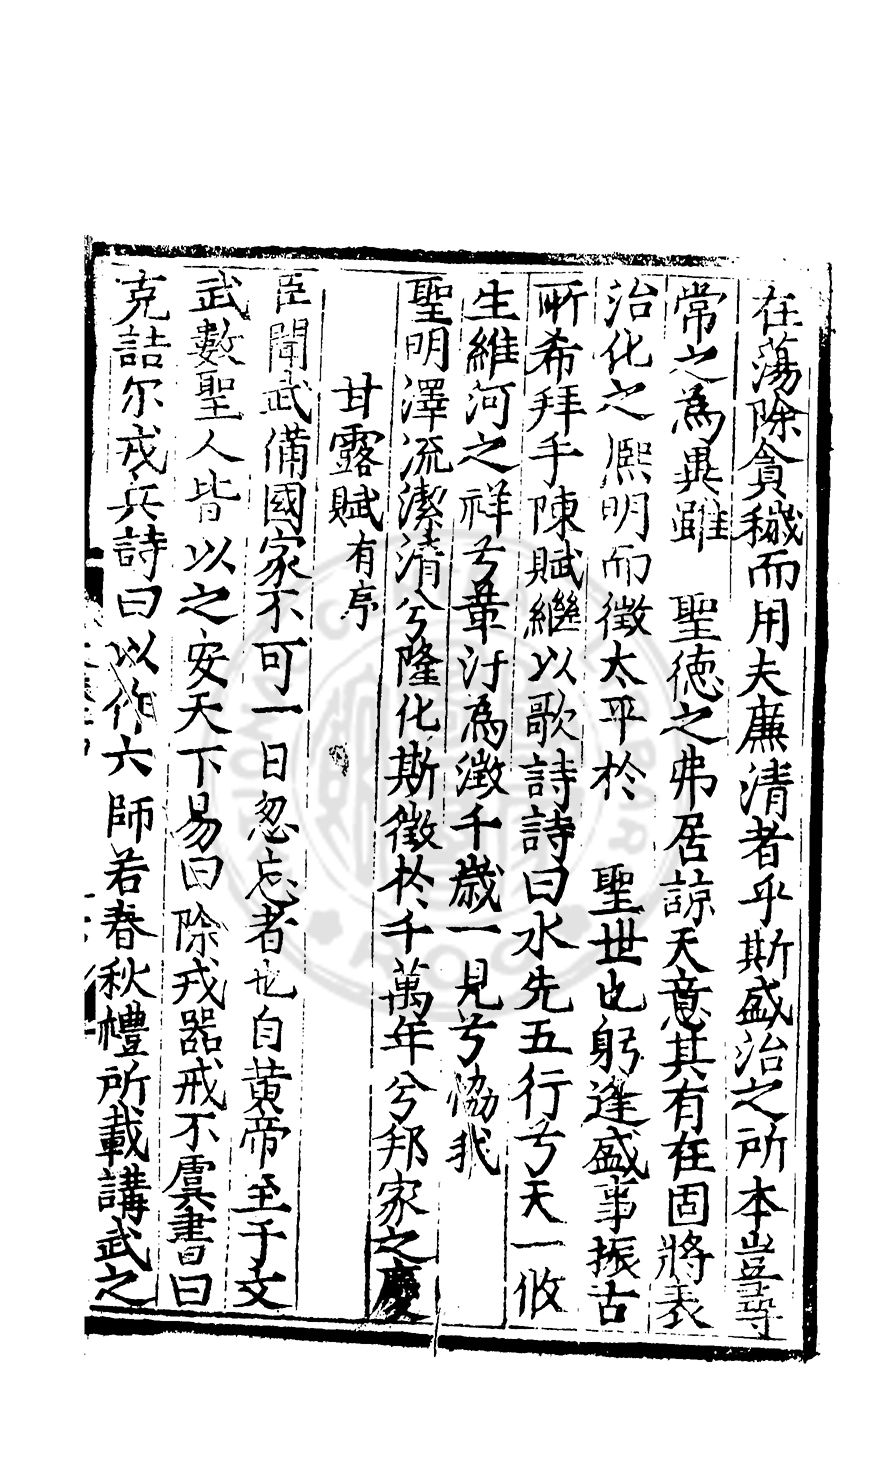 在蕩除貪穢而用夫廉清者乎斯盛治之所本豈尋
常之為異雖 聖德之弗居諒天意其有在固將表
治化之熈明而徵太平於 聖世也躬逢盛事振古
所希拜手陳賦繼以歌詩詩曰水先五行兮天一攸
生維河之祥兮葦汁為澂千歲一見兮協我
聖明澤流潔清兮隆化斯徵於千萬年兮邦家之慶
甘露賦有序
臣聞武備國家不可一日忽忘者也自黃帝至于文
武數聖人皆以之安天下易曰除戎器戒不虞書曰
克詰尔戎兵詩曰以作六師若春秋禮所載講武之